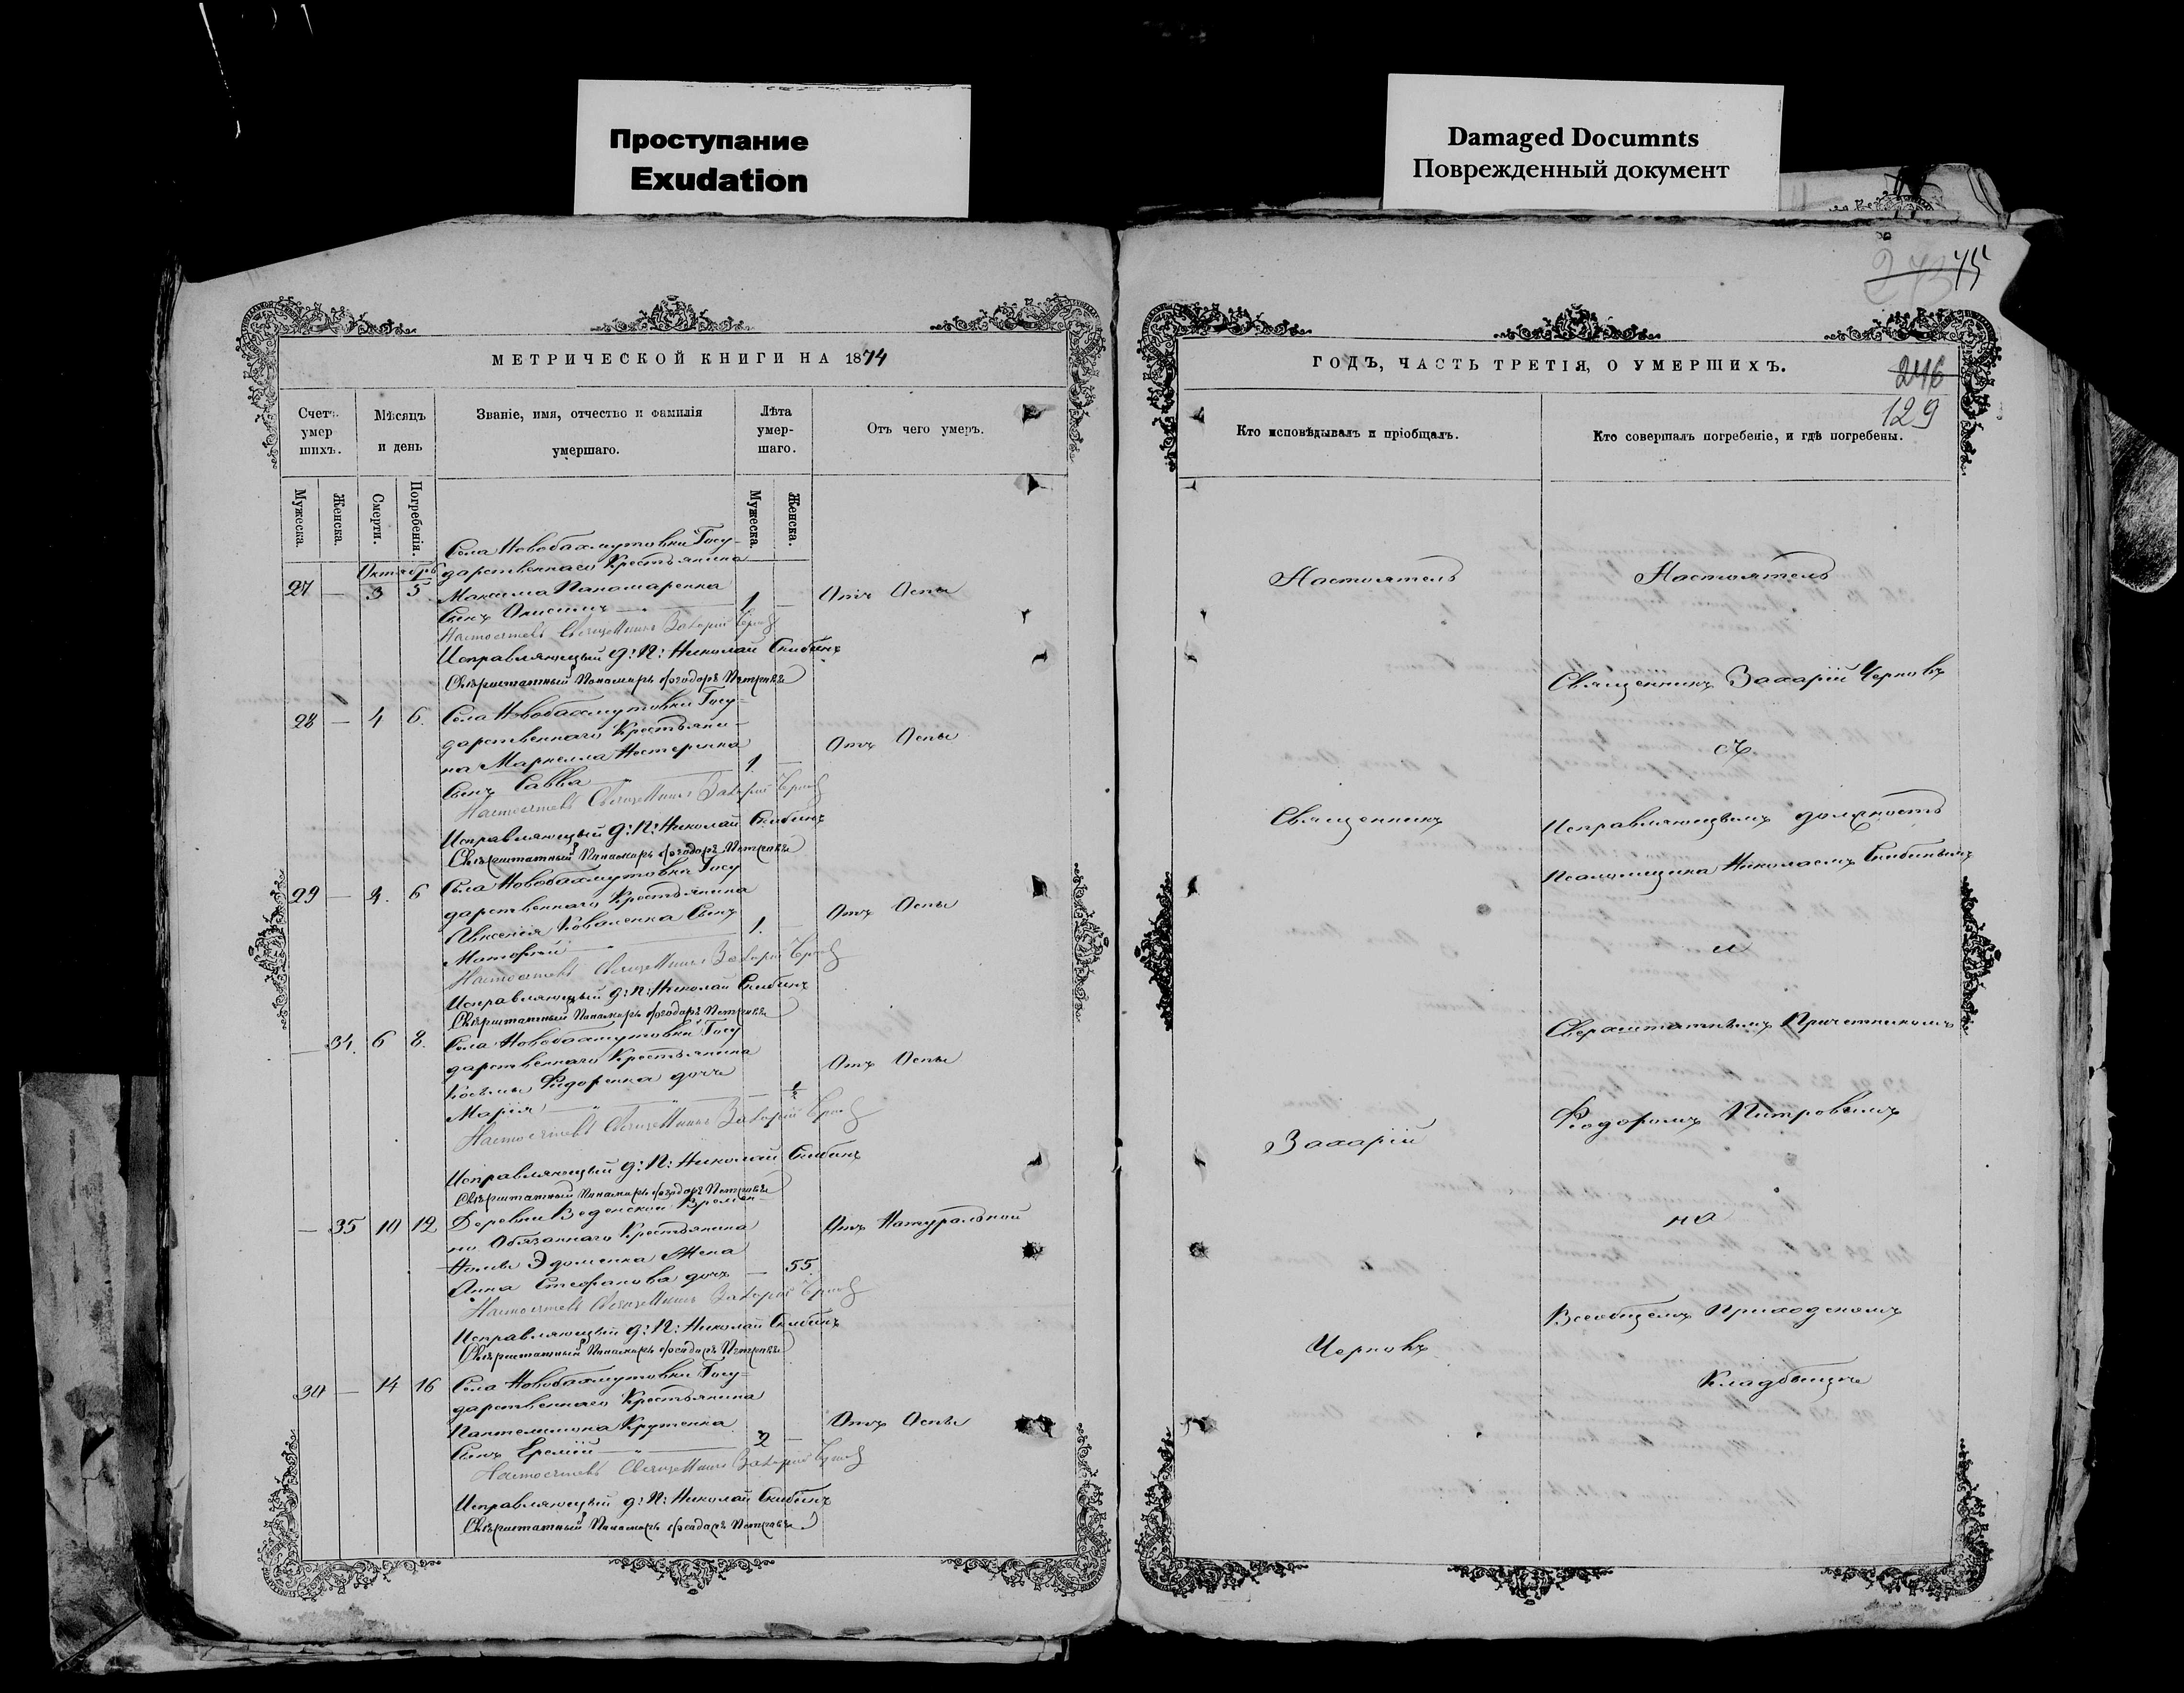 Проступание
Exudation
Damaged Documnts
Поврежденный документ
МЕТРИЧЕСКОЙ КНИГИ НА 1874
Счетъ умершихъ.
Мѣсяцъ и день
Званіе, имя, отчество и фамилія умершаго.
Лѣта умершаго.
Отъ чего умеръ.
Мужеска.
Женска.
Смерти.
Погребенія.
Мужеска.
Женска.
Октябрь
Села Новобахмутовки Госу-
дарственнаго Крестьянина
27 — 3 5 Максима Панамаренка
Сынъ Онисимъ — 1 — Отъ Оспы
Настоятель Священникъ Захарій Черновъ
Исправляющій д: П: Николай Скибинъ
Сверхштатный Панамарь Феодоръ Петровъ
28 — 4 6. Села Новобахмутовки Госу-
дарственнаго Крестьяни-
на Маркелла Нестеренка Отъ Оспы
Сынъ Савва — 1. —
Настоятель Священникъ Захарій Черновъ
Исправляющій д: П: Николай Скибинъ
Сверхштатный Панамарь Феодоръ Петровъ
29 — 4. 6 Села Новобахмутовки Госу
дарственнаго Крестьянина
Авксентія Коваленка Сынъ Отъ Оспы
— 1. —
Настоятель Священникъ Захарій Черновъ
Исправляющій д: П: Николай Скибинъ
Сверхштатный Панамарь Феодоръ Петровъ
— 34. 6 8. Села Новобахмутовки Госу
дарственнаго Крестьянина
Косьмы Фидоренка дочь Отъ Оспы
Марія — —
Настоятель Священникъ Захарій Черновъ
Исправляющій д: П: Николай Скибинъ
Сверхштатный Панамарь Феодоръ Петровъ
— 35 10 12 Деревни Веденской Времен-
но Обязаннаго Крестьянина Отъ Натуральной
Жена
Анна Стефанова дочь — 55.
Настоятель Священникъ Захарій Черновъ
Исправляющій д: П: Николай Скибинъ
Сверхштатный Панамарь Феодоръ Петровъ
30 — 14 16 Села Новобахмутовки Госу-
дарственнаго Крестьянина
Пантелимона Крутенка Отъ Оспы
Сынъ Еремій — 2 —
Настоятель Священникъ Захарій Черновъ
Исправляющій д: П: Николай Скибинъ
Сверхштатный Панамарь Феодоръ Петровъ
45
246
129
ГОДЪ, ЧАСТЬ ТРЕТІЯ, О УМЕРШИХЪ.
Кто исповѣдывалъ и пріобщалъ.
Кто совершалъ погребеніе, и гдѣ погребены.
Настоятель
Священникъ
Захарій
Черновъ
Настоятель
Священникъ Захарій Черновъ
съ
Исправляющимъ должность
Псаломщика Николаемъ Скибинымъ
и
Сверхштатнымъ Причетникомъ
Феодоромъ Питровымъ
на
Всеобщемъ Приходскомъ
Кладбищѣ